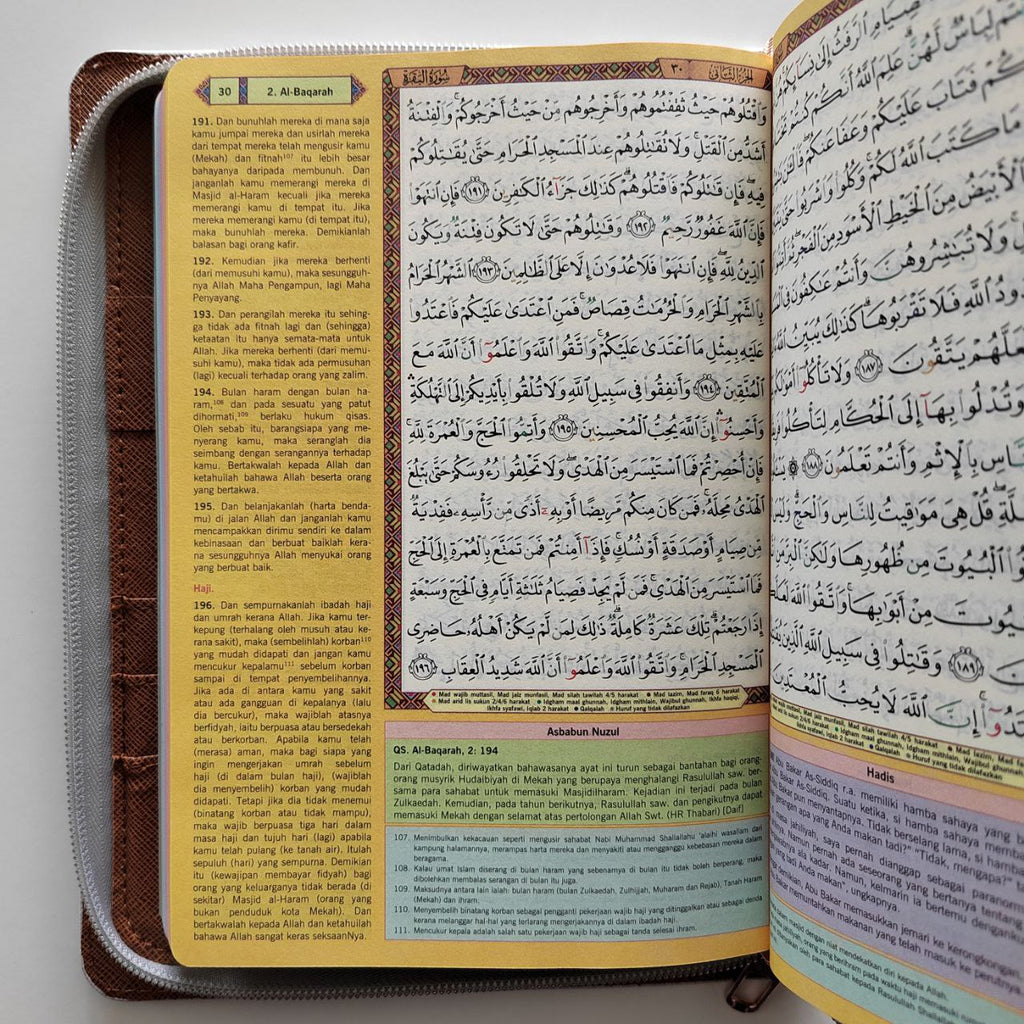 30
2. Al-Baqarah
191. Dan bunuhlah mereka di mana saja
kamu jumpai mereka dan usirlah mereka
dari tempat mereka telah mengusir kamu
(Mekah) dan fitnah¹⁰⁷ itu lebih besar
bahayanya daripada membunuh. Dan
janganlah kamu memerangi mereka di
Masjid al-Haram kecuali jika mereka
memerangi kamu di tempat itu. Jika
mereka memerangi kamu (di tempat itu),
maka bunuhlah mereka. Demikianlah
balasan bagi orang kafir.
192. Kemudian jika mereka berhenti
(dari memusuhi kamu), maka sesungguh-
nya Allah Maha Pengampun, lagi Maha
Penyayang.
193. Dan perangilah mereka itu sehing-
ga tidak ada fitnah lagi dan (sehingga)
ketaatan itu hanya semata-mata untuk
Allah. Jika mereka berhenti (dari memu-
suhi kamu), maka tidak ada permusuhan
(lagi) kecuali terhadap orang yang zalim.
194. Bulan haram dengan bulan ha-
ram,¹⁰⁸ dan pada sesuatu yang patut
dihormati,¹⁰⁹ berlaku hukum qisas.
Oleh sebab itu, barangsiapa yang me-
nyerang kamu, maka seranglah dia
seimbang dengan serangannya terhadap
kamu. Bertakwalah kepada Allah dan
ketahuilah bahawa Allah beserta orang
yang bertakwa.
195. Dan belanjakanlah (harta benda-
mu) di jalan Allah dan janganlah kamu
mencampakkan dirimu sendiri ke dalam
kebinasaan dan berbuat baiklah kera-
na sesungguhnya Allah menyukai orang
yang berbuat baik.
Haji.
196. Dan sempurnakanlah ibadah haji
dan umrah kerana Allah. Jika kamu ter-
kepung (terhalang oleh musuh atau ke-
rana sakit), maka (sembelihlah) korban¹¹⁰
yang mudah didapati dan jangan kamu
mencukur kepalamu¹¹¹ sebelum korban
sampai di tempat penyembelihannya.
Jika ada di antara kamu yang sakit
atau ada gangguan di kepalanya (lalu
dia bercukur), maka wajiblah atasnya
berfidyah, iaitu berpuasa atau bersedekah
atau berkorban. Apabila kamu telah
(merasa) aman, maka bagi siapa yang
ingin mengerjakan umrah sebelum
haji (di dalam bulan haji), (wajiblah
dia menyembelih) korban yang mudah
didapati. Tetapi jika dia tidak menemui
(binatang korban atau tidak mampu),
maka wajib berpuasa tiga hari dalam
masa haji dan tujuh hari (lagi) apabila
kamu telah pulang (ke tanah air). Itulah
sepuluh (hari) yang sempurna. Demikian
itu (kewajipan membayar fidyah) bagi
orang yang keluarganya tidak berada (di
sekitar) Masjid al-Haram (orang yang
bukan penduduk kota Mekah). Dan
bertakwalah kepada Allah dan ketahuilah
bahawa Allah sangat keras seksaanNya.
الجزء الثاني ٣٠ سورة البقرة
وَاقْتُلُوهُمْ حَيْثُ ثَقِفْتُمُوهُمْ وَأَخْرِجُوهُم مِّنْ حَيْثُ أَخْرَجُوكُمْ ۚ وَالْفِتْنَةُ
أَشَدُّ مِنَ الْقَتْلِ ۚ وَلَا تُقَاتِلُوهُمْ عِندَ الْمَسْجِدِ الْحَرَامِ حَتَّىٰ يُقَاتِلُوكُمْ
فِيهِ ۖ فَإِن قَاتَلُوكُمْ فَاقْتُلُوهُمْ ۗ كَذَٰلِكَ جَزَاءُ الْكَافِرِينَ ﴿١٩١﴾ فَإِنِ انتَهَوْا
فَإِنَّ اللَّهَ غَفُورٌ رَّحِيمٌ ﴿١٩٢﴾ وَقَاتِلُوهُمْ حَتَّىٰ لَا تَكُونَ فِتْنَةٌ وَيَكُونَ
الدِّينُ لِلَّهِ ۖ فَإِنِ انتَهَوْا فَلَا عُدْوَانَ إِلَّا عَلَى الظَّالِمِينَ ﴿١٩٣﴾ الشَّهْرُ الْحَرَامُ
بِالشَّهْرِ الْحَرَامِ وَالْحُرُمَاتُ قِصَاصٌ ۚ فَمَنِ اعْتَدَىٰ عَلَيْكُمْ فَاعْتَدُوا
عَلَيْهِ بِمِثْلِ مَا اعْتَدَىٰ عَلَيْكُمْ ۚ وَاتَّقُوا اللَّهَ وَاعْلَمُوا أَنَّ اللَّهَ مَعَ
الْمُتَّقِينَ ﴿١٩٤﴾ وَأَنفِقُوا فِي سَبِيلِ اللَّهِ وَلَا تُلْقُوا بِأَيْدِيكُمْ إِلَى التَّهْلُكَةِ ۛ
وَأَحْسِنُوا ۛ إِنَّ اللَّهَ يُحِبُّ الْمُحْسِنِينَ ﴿١٩٥﴾ وَأَتِمُّوا الْحَجَّ وَالْعُمْرَةَ لِلَّهِ ۚ
فَإِنْ أُحْصِرْتُمْ فَمَا اسْتَيْسَرَ مِنَ الْهَدْيِ ۖ وَلَا تَحْلِقُوا رُءُوسَكُمْ حَتَّىٰ يَبْلُغَ
الْهَدْيُ مَحِلَّهُ ۚ فَمَن كَانَ مِنكُم مَّرِيضًا أَوْ بِهِ أَذًى مِّن رَّأْسِهِ فَفِدْيَةٌ
مِّن صِيَامٍ أَوْ صَدَقَةٍ أَوْ نُسُكٍ ۚ فَإِذَا أَمِنتُمْ فَمَن تَمَتَّعَ بِالْعُمْرَةِ إِلَى الْحَجِّ
فَمَا اسْتَيْسَرَ مِنَ الْهَدْيِ ۚ فَمَن لَّمْ يَجِدْ فَصِيَامُ ثَلَاثَةِ أَيَّامٍ فِي الْحَجِّ وَسَبْعَةٍ
إِذَا رَجَعْتُمْ ۗ تِلْكَ عَشَرَةٌ كَامِلَةٌ ۗ ذَٰلِكَ لِمَن لَّمْ يَكُنْ أَهْلُهُ حَاضِرِي
الْمَسْجِدِ الْحَرَامِ ۚ وَاتَّقُوا اللَّهَ وَاعْلَمُوا أَنَّ اللَّهَ شَدِيدُ الْعِقَابِ ﴿١٩٦﴾
● Mad wajib muttasil, Mad jaiz munfasil, Mad silah tawilah 4/5 harakat ● Mad lazim, Mad faraq 6 harakat
● Mad arid lis sukun 2/4/6 harakat ● Idgham maal ghunnah, Idgham mithlain, Wajibul ghunnah, Ikhfa haqiqi,
Ikhfa syafawi, Iqlab 2 harakat ● Qalqalah ● Huruf yang tidak dilafazkan
Asbabun Nuzul
QS. Al-Baqarah, 2: 194
Dari Qatadah, diriwayatkan bahawasanya ayat ini turun sebagai bantahan bagi orang-
orang musyrik Hudaibiyah di Mekah yang berupaya menghalangi Rasulullah saw. ber-
sama para sahabat untuk memasuki Masjidilharam. Kejadian ini terjadi pada bulan
Zulkaedah. Kemudian, pada tahun berikutnya, Rasulullah saw. dan pengikutnya dapat
memasuki Mekah dengan selamat atas pertolongan Allah Swt. (HR Thabari) [Daif]
107. Menimbulkan kekacauan seperti mengusir sahabat Nabi Muhammad Shallallahu 'alaihi wasallam dari
kampung halamannya, merampas harta mereka dan menyakiti atau mengganggu kebebasan mereka dalam
beragama.
108. Kalau umat Islam diserang di bulan haram yang sebenarnya di bulan itu tidak boleh berperang, maka
dibolehkan membalas serangan di bulan itu juga.
109. Maksudnya antara lain ialah: bulan haram (bulan Zulkaedah, Zulhijjah, Muharam dan Rejab), Tanah Haram
(Mekah) dan ihram.
110. Menyembelih binatang korban sebagai pengganti pekerjaan wajib haji yang ditinggalkan atau sebagai denda
kerana melanggar hal-hal yang terlarang mengerjakannya di dalam ibadah haji.
111. Mencukur kepala adalah salah satu pekerjaan wajib haji sebagai tanda selesai ihram.
صِيَامِ الرَّفَثُ إِلَىٰ نِسَائِكُمْ
لِبَاسٌ لَّهُنَّ ۗ عَلِمَ اللَّهُ أَنَّكُمْ كُنتُمْ
فَتَابَ عَلَيْكُمْ وَعَفَا عَنكُمْ ۖ فَالْآنَ
مَا كَتَبَ اللَّهُ لَكُمْ ۚ وَكُلُوا وَاشْرَبُوا حَتَّىٰ
الْأَبْيَضُ مِنَ الْخَيْطِ الْأَسْوَدِ مِنَ الْفَجْرِ ۖ
وَلَا تُبَاشِرُوهُنَّ وَأَنتُمْ عَاكِفُونَ فِي
اللَّهِ فَلَا تَقْرَبُوهَا ۗ كَذَٰلِكَ يُبَيِّنُ
لَعَلَّهُمْ يَتَّقُونَ ﴿١٨٧﴾ وَلَا تَأْكُلُوا
وَتُدْلُوا بِهَا إِلَى الْحُكَّامِ لِتَأْكُلُوا
بِالْإِثْمِ وَأَنتُمْ تَعْلَمُونَ ﴿١٨٨﴾
قُلْ هِيَ مَوَاقِيتُ لِلنَّاسِ وَالْحَجِّ ۗ
الْبُيُوتَ مِن ظُهُورِهَا وَلَٰكِنَّ الْبِرَّ
مِنْ أَبْوَابِهَا ۚ وَاتَّقُوا اللَّهَ
﴿١٨٩﴾ وَقَاتِلُوا فِي سَبِيلِ اللَّهِ الَّذِينَ
إِنَّ اللَّهَ لَا يُحِبُّ الْمُعْتَدِينَ
Hadis
Abu Bakar As-Siddiq r.a. memiliki hamba sahaya yang
Abu Bakar As-Siddiq. Suatu ketika, si hamba sahaya
Bakar pun menyantapnya. Tidak berselang lama, si
apa yang Anda makan tadi?" "Tidak, mengapa?"
jahiliyah, saya pernah dianggap sebagai paranormal
saya pernah seseorang yang bertanya tentang
ala kadar. Namun, kelmarin ia bertemu
tadi Anda makan" ungkapnya.
demikian, Abu Bakar memasukkan jemari ke kerongkongan,
memuntahkan makanan yang telah masuk ke perutnya.
dalam masjid dengan niat mendekatkan diri kepada Allah.
jahiliyah, orang yang berihram pada waktu haji memasuki
oleh para sahabat kepada Rasulullah